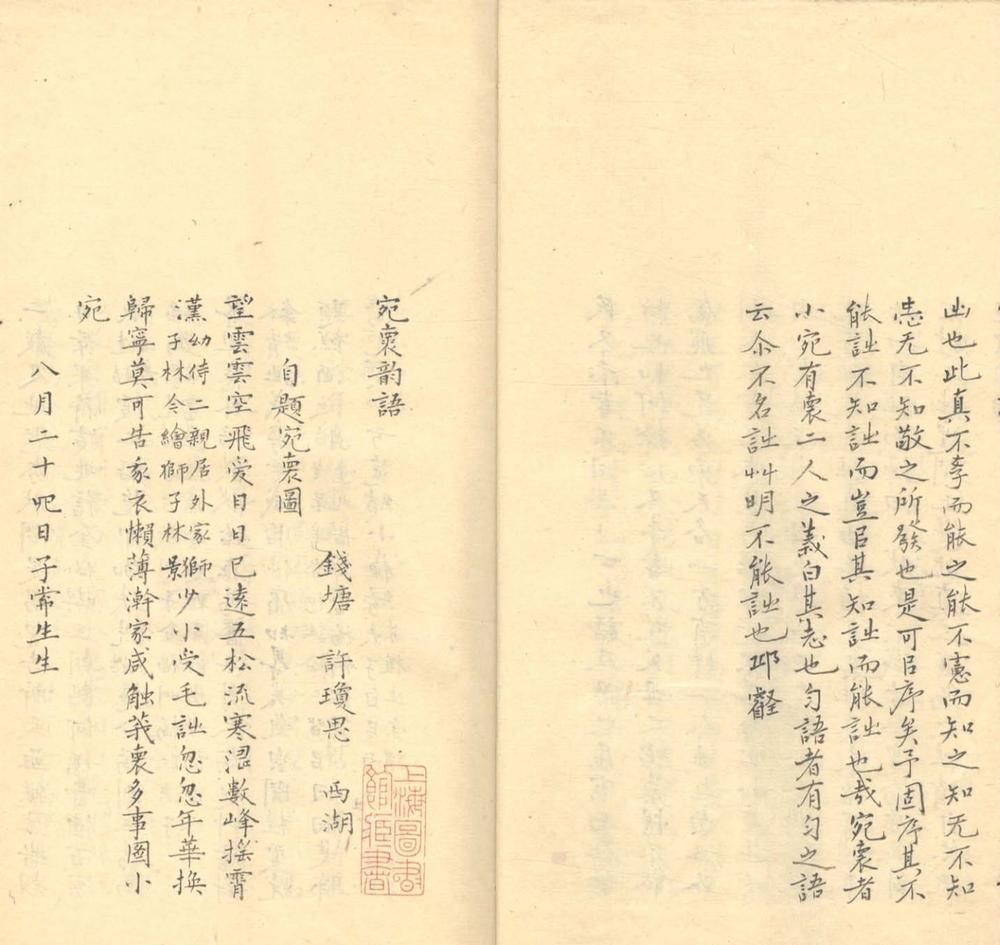 出也此真不季而能之能不憲而知之知无不知
恚无不知敬之所發也是可㠯序矣予固序其不
能詘不知詘而豈㠯其知詘而能詘也哉宛褱者
小宛有褱二人之義白其志也匀語者有匀之語
云尒不名詘艸明不能詘也邛叡
宛褱韵語
自題宛褱圖
錢塘 許瓊思 西湖
望雲雲空飛愛日日已遠五松流寒濜數峰搖霄
漢幼侍二親居外家獅子林令繪獅子林景少小受毛詘忽忽年華換
歸寧莫可告褱衣懶薄澣家咸触莪褱多事圖小
宛
八月二十四日子常生生
上海圖書館臧書